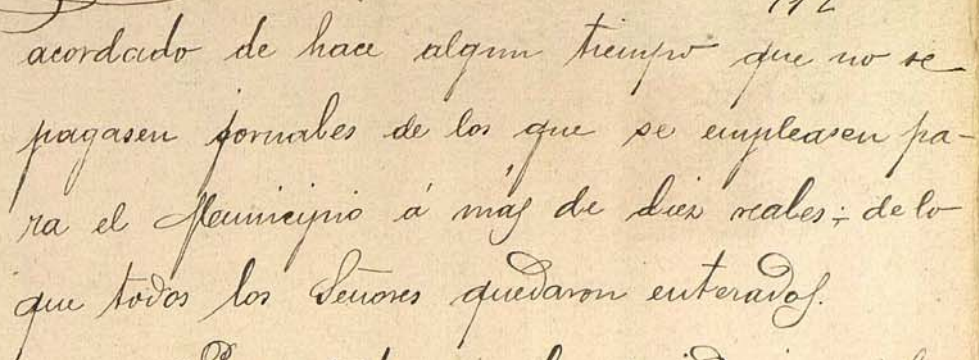 acordado de hace algun tiempo que no se
pagasen jornales de los que se empleasen pa-
ra el Municipio á más de diez reales; de lo
que todos los Señores quedaron enterados.